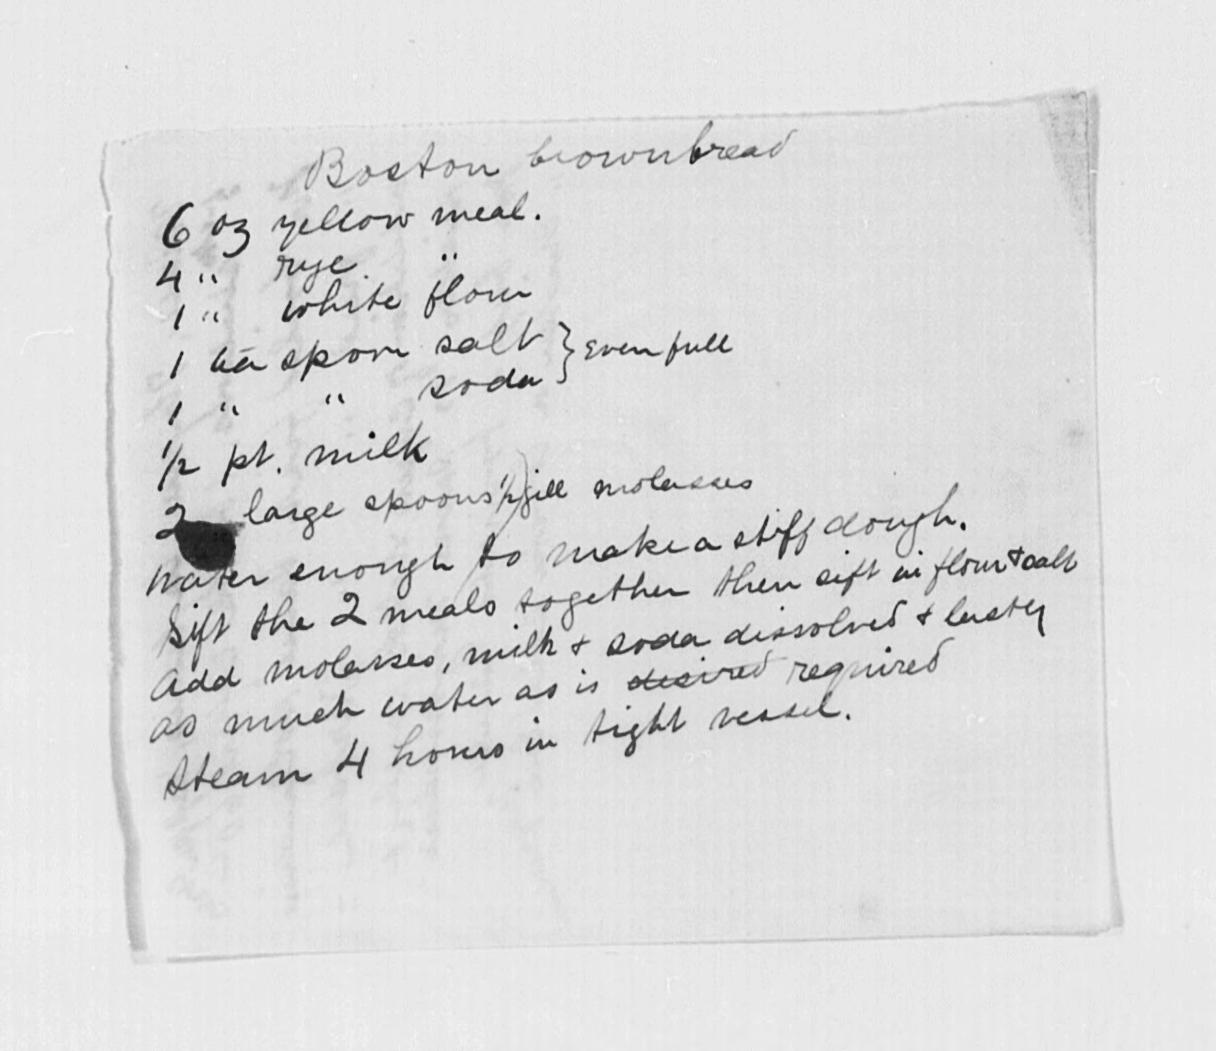 Boston brownbread
6 oz yellow meal.
4 " rye "
1 " white flour
1 tea spoon salt } even full
1 " " soda
1/2 pt. milk
2 large spoons (1/2 gill) molasses
water enough to make a stiff dough.
Sift the 2 meals together then sift in flour & salt
add molasses, milk & soda dissolved & lastly
as much water as is desired required
Steam 4 hours in tight vessel.